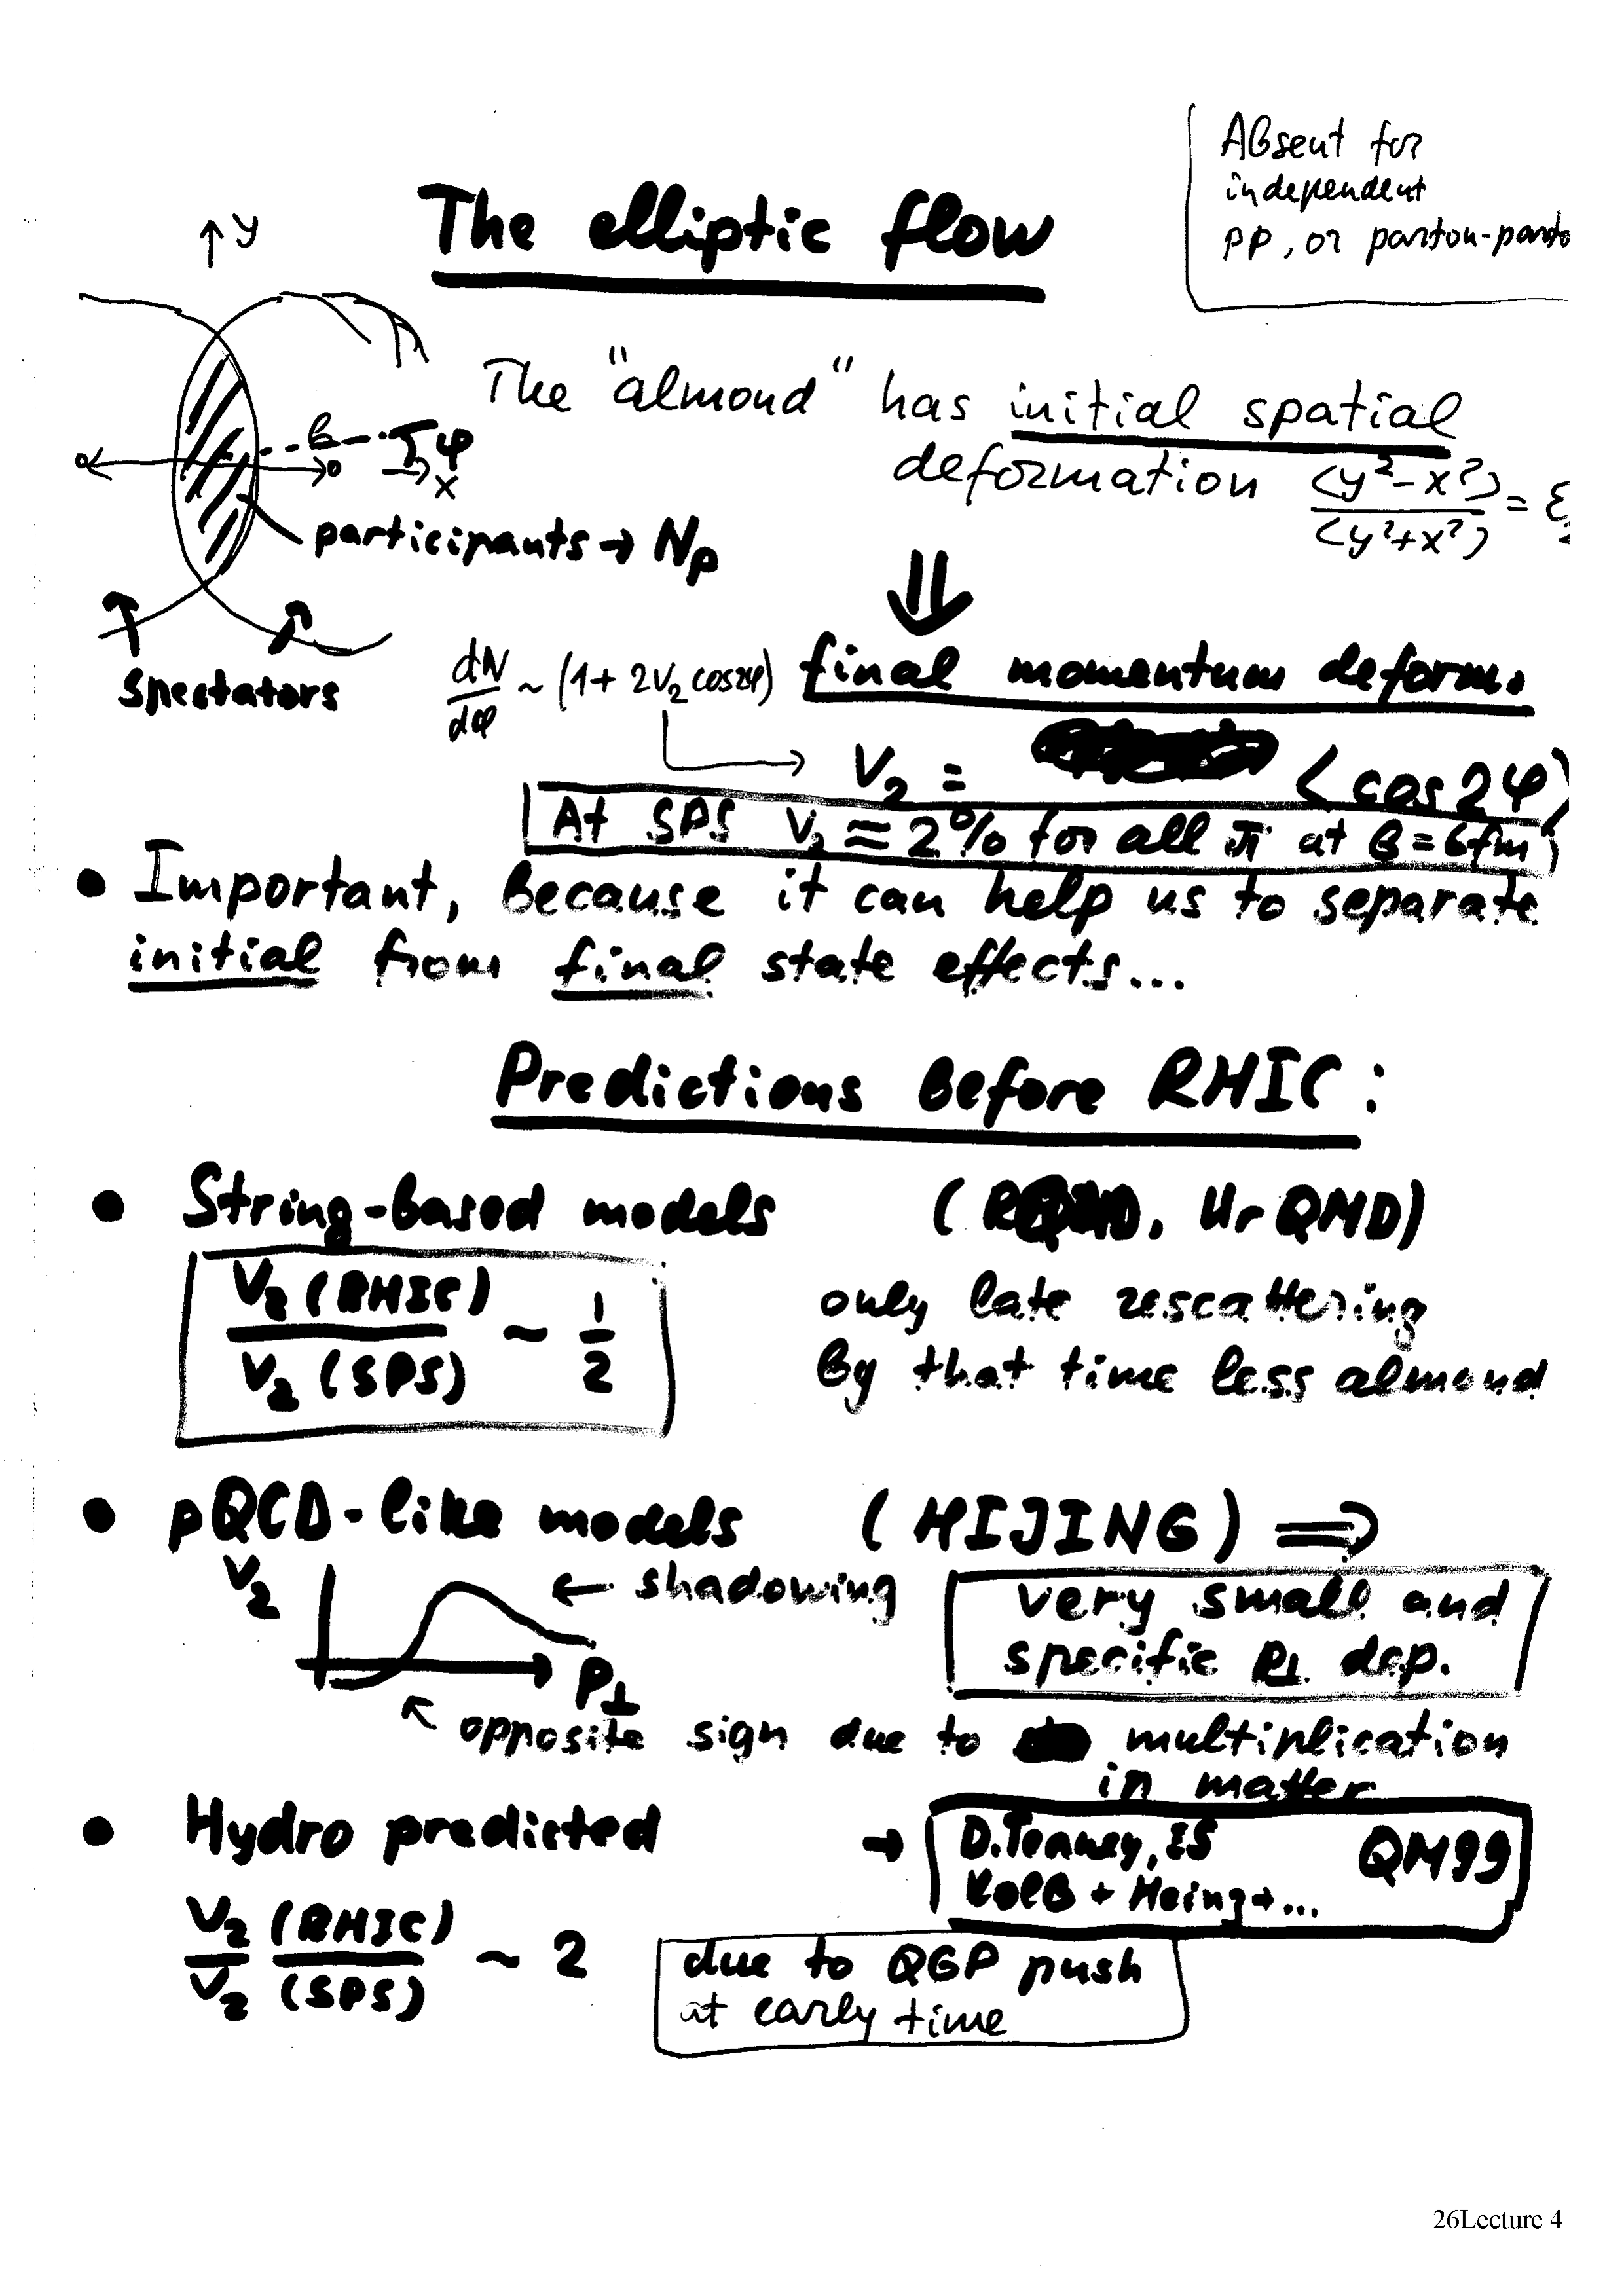 Absent for
independent
pp, or parton-parto
The elliptic flow
y
The "almond" has initial spatial
deformation <y²-x²>/<y²+x²> = ε
b φ
x
participants → Np
⇓
Spectators
dN/dφ ~ (1+2v₂cos2φ) final momentum deform.
v₂ = <cos2φ>
At SPS v₂ ≈ 2% for all π at b=6fm
• Important, because it can help us to separate
initial from final state effects...
Predictions before RHIC:
• String-based models (RQMD, UrQMD)
v₂(RHIC)/v₂(SPS) ~ 1/2
only late rescattering
by that time less almond
• pQCD-like models (HIJING) ⇒
v₂ ← shadowing
very small and
specific p⊥ dep.
p⊥
opposite sign due to multiplication
in matter
• Hydro predicted → D.Teaney, ES QM99
Kolb + Heinz+...
v₂(RHIC)/v₂(SPS) ~ 2
due to QGP push
at early time
26Lecture 4